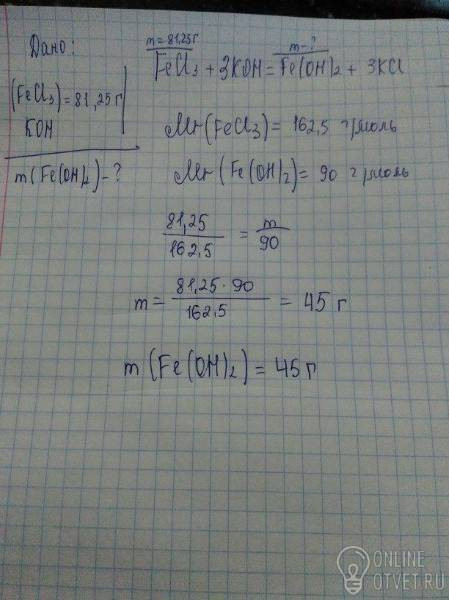 Дано:
(FeCl₃)=81,25г
KOH
m(Fe(OH)₂)-?
m=81,25г m-?
FeCl₃+3KOH=Fe(OH)₂+3KCl
Mr(FeCl₃)=162,5 г/моль
Mr(Fe(OH)₂)=90 г/моль
81,25/162,5=m/90
m=81,25·90/162,5=45г
m(Fe(OH)₂)=45г
ONLINE
OTVET.RU